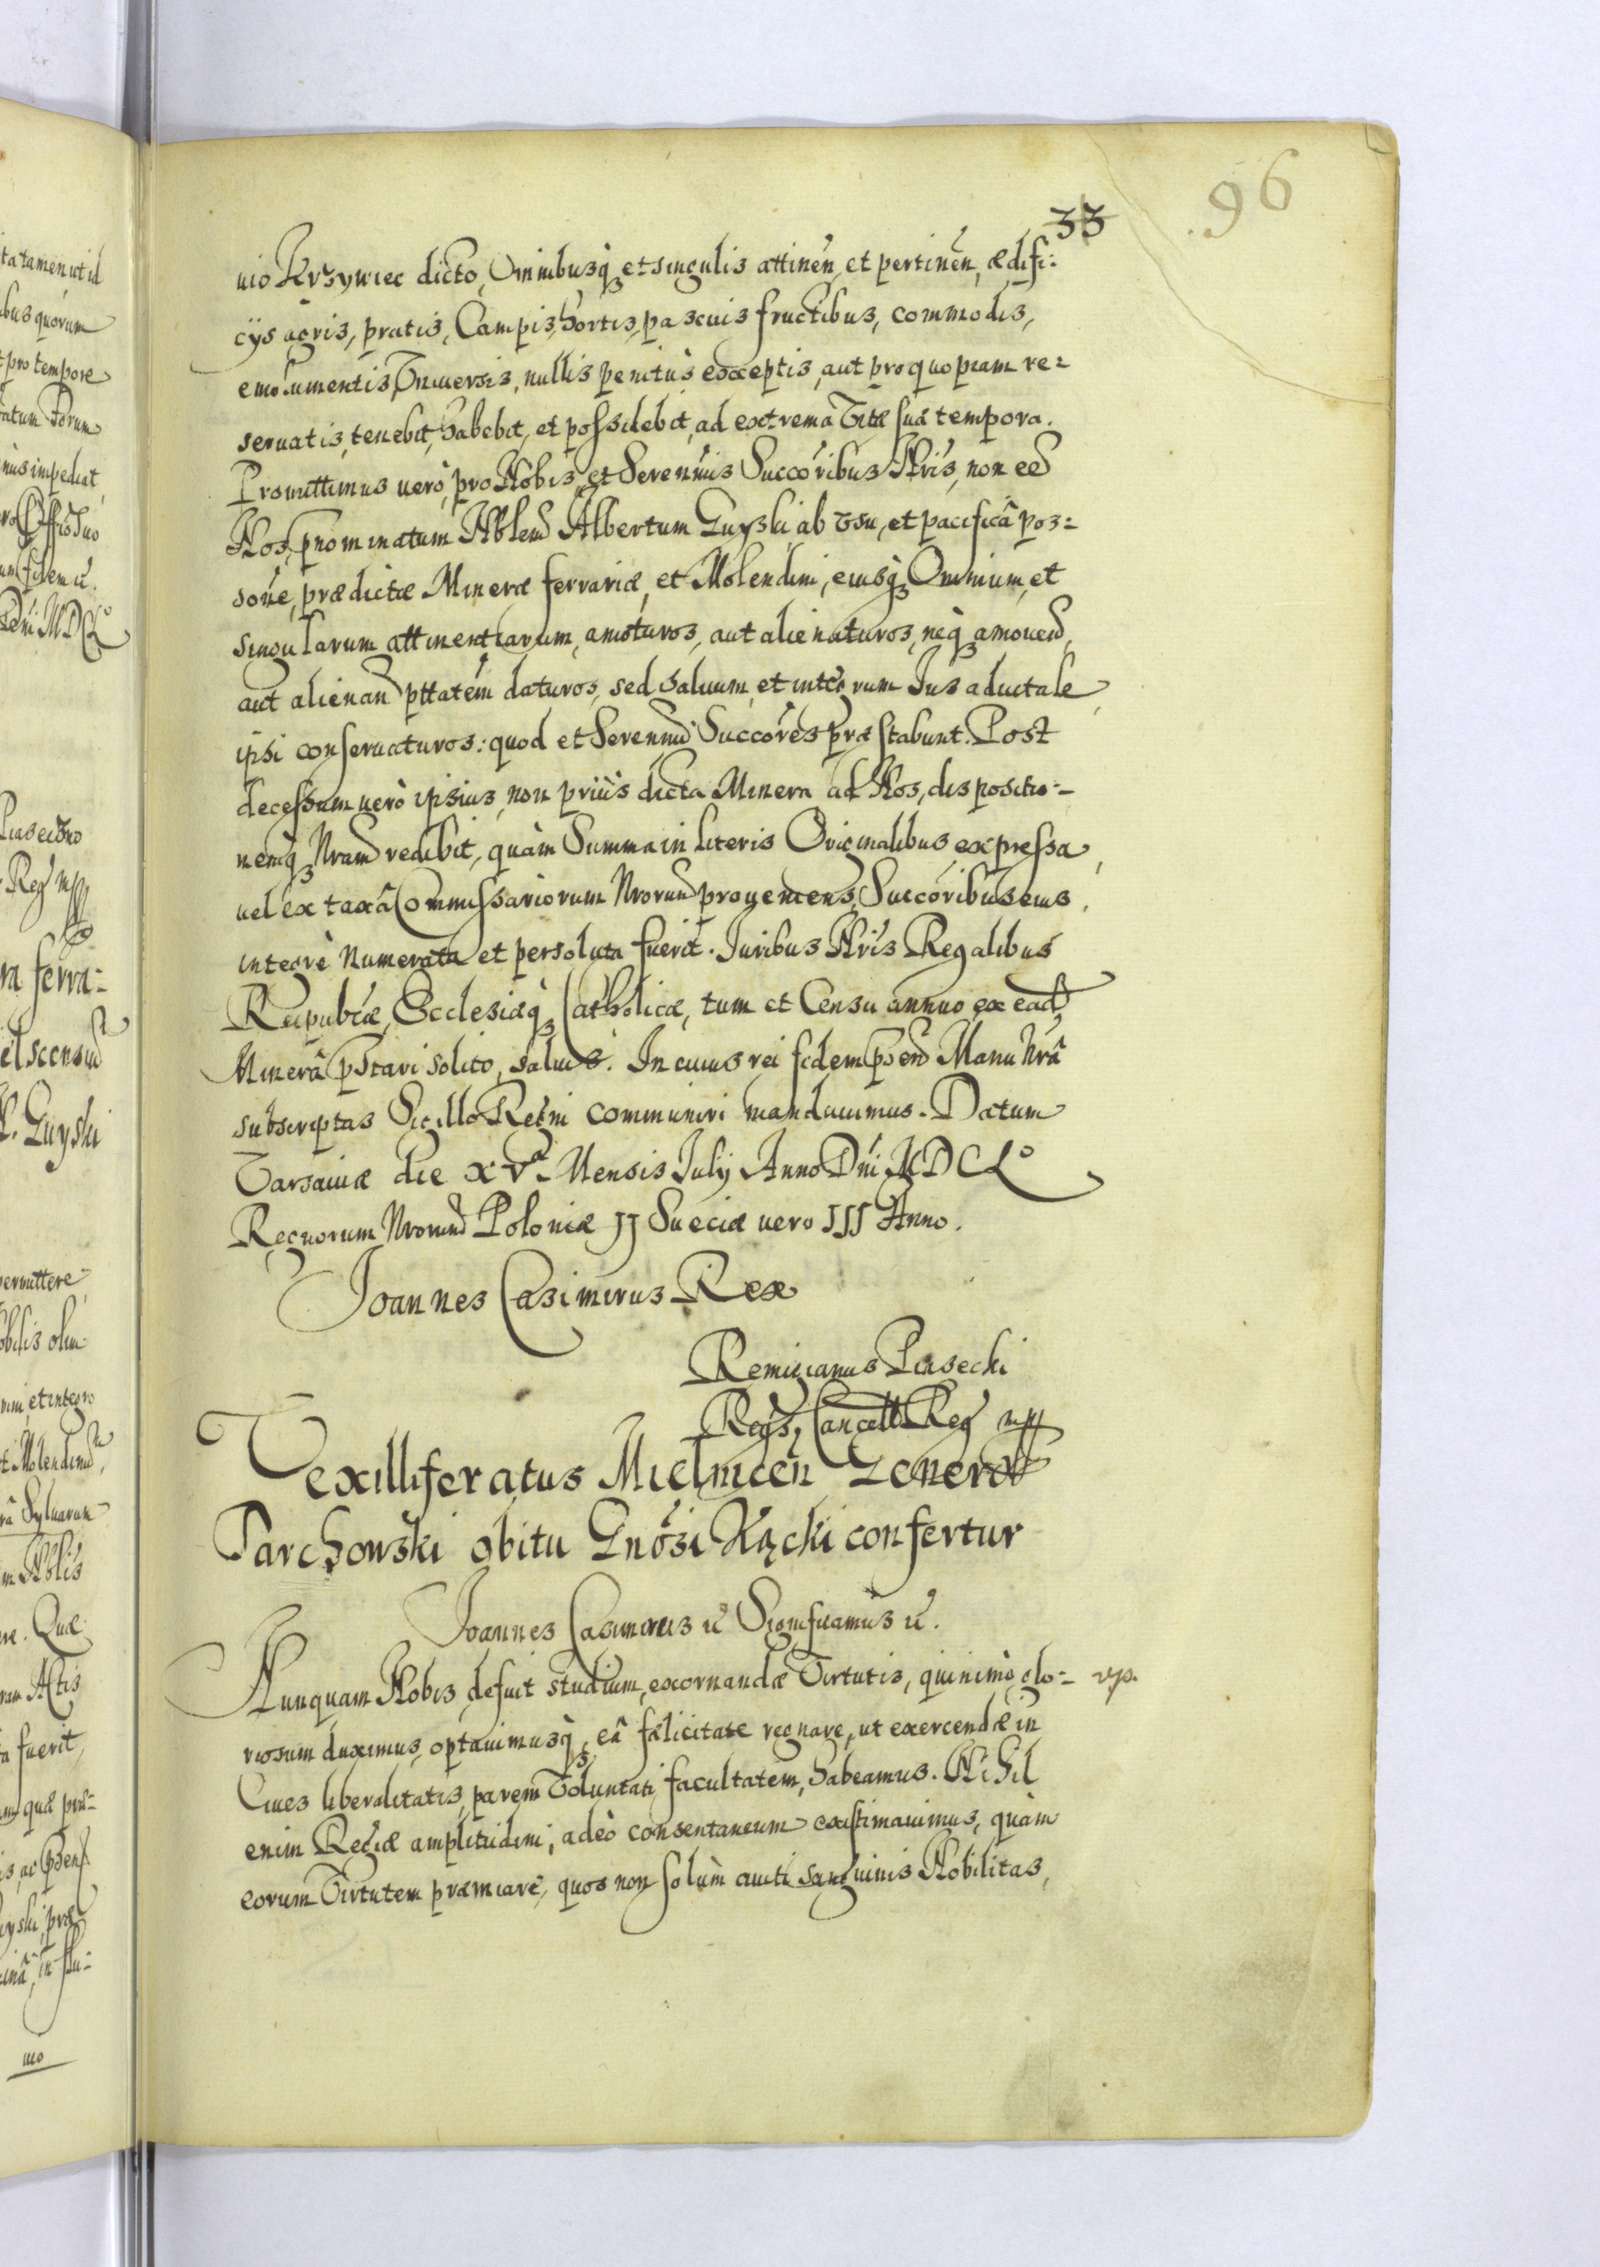 96
33
uio Krzywiec dicto, Omnibusq et singulis attinen, et pertinen, ædifi:
cÿs agris, pratis, Campis, hortis, pascuis fructibus, commodis,
emolumentis, Vniuersis, nullis penitùs exceptis, aut pro quopiam re-
seruatis, tenebit, habebit, et possidebit, ad extrema Vitæ suæ tempora.
Promittimus uerò, pro Nobis, et Serenmis Succoribus Nris, non eē
Nos, pnominatum Nblem Albertum Guyski, ab Vsu, et pacificâ pos=
sone, prædictæ Mineræ ferrariæ, et Molendini, eiusq Omnium, et
singularum attinentiarum, amoturos, aut alienaturos, neq amouend,
aut alienan pttatem daturos, sed saluum, et integrum Jus aduitale
ipsi conseruaturos: quod et Serenmi Succores præstabunt. Post
decessum uerò ipsius, non priùs dicta Minera ad Nos, dispositio-
nemq Nram redibit, quàm Summa in literis Originalibus expressa,
uel ex taxâ Commissariorum Nrorum proueniens, Succoribus eius,
integrè numerata et persoluta fuerit. Juribus Nris Regalibus
Reipubcæ, Ecclesiæq Catholicæ, tum et Censu annuo, ex ead
Minerâ pstari solito, saluis. In cuius rei fidem psens Manu Nrâ
subscriptas Sigillo Regni communiri mandauimus. Datum
Varsauiæ die XVa Mensis Julÿ Anno Dni MDCLo
Regnorum Nrorum Poloniæ II Sueciæ uero III Anno.
Joannes Casimirus Rex
Remigianus Piasecki
Regs, Cancell. Reg mpp
Vexilliferatus Mielnicen Generoso
Tarchowski obitu Gnosi Kącki confertur
Joannes Casimirus etc Significamus etc.
Nunquam Nobis defuit studium, exornandæ Virtutis, quinimò glo=
riosum duximus, optauimusq, eâ fælicitate regnare, ut exercendæ in
Ciues liberalitatis, parem Voluntati facultatem, habeamus. Nihil
enim Regiæ amplitudini, adeò consentaneum existimauimus, quàm
eorum Virtutem præmiare, quos non solùm auiti sanguinis Nobilitas,